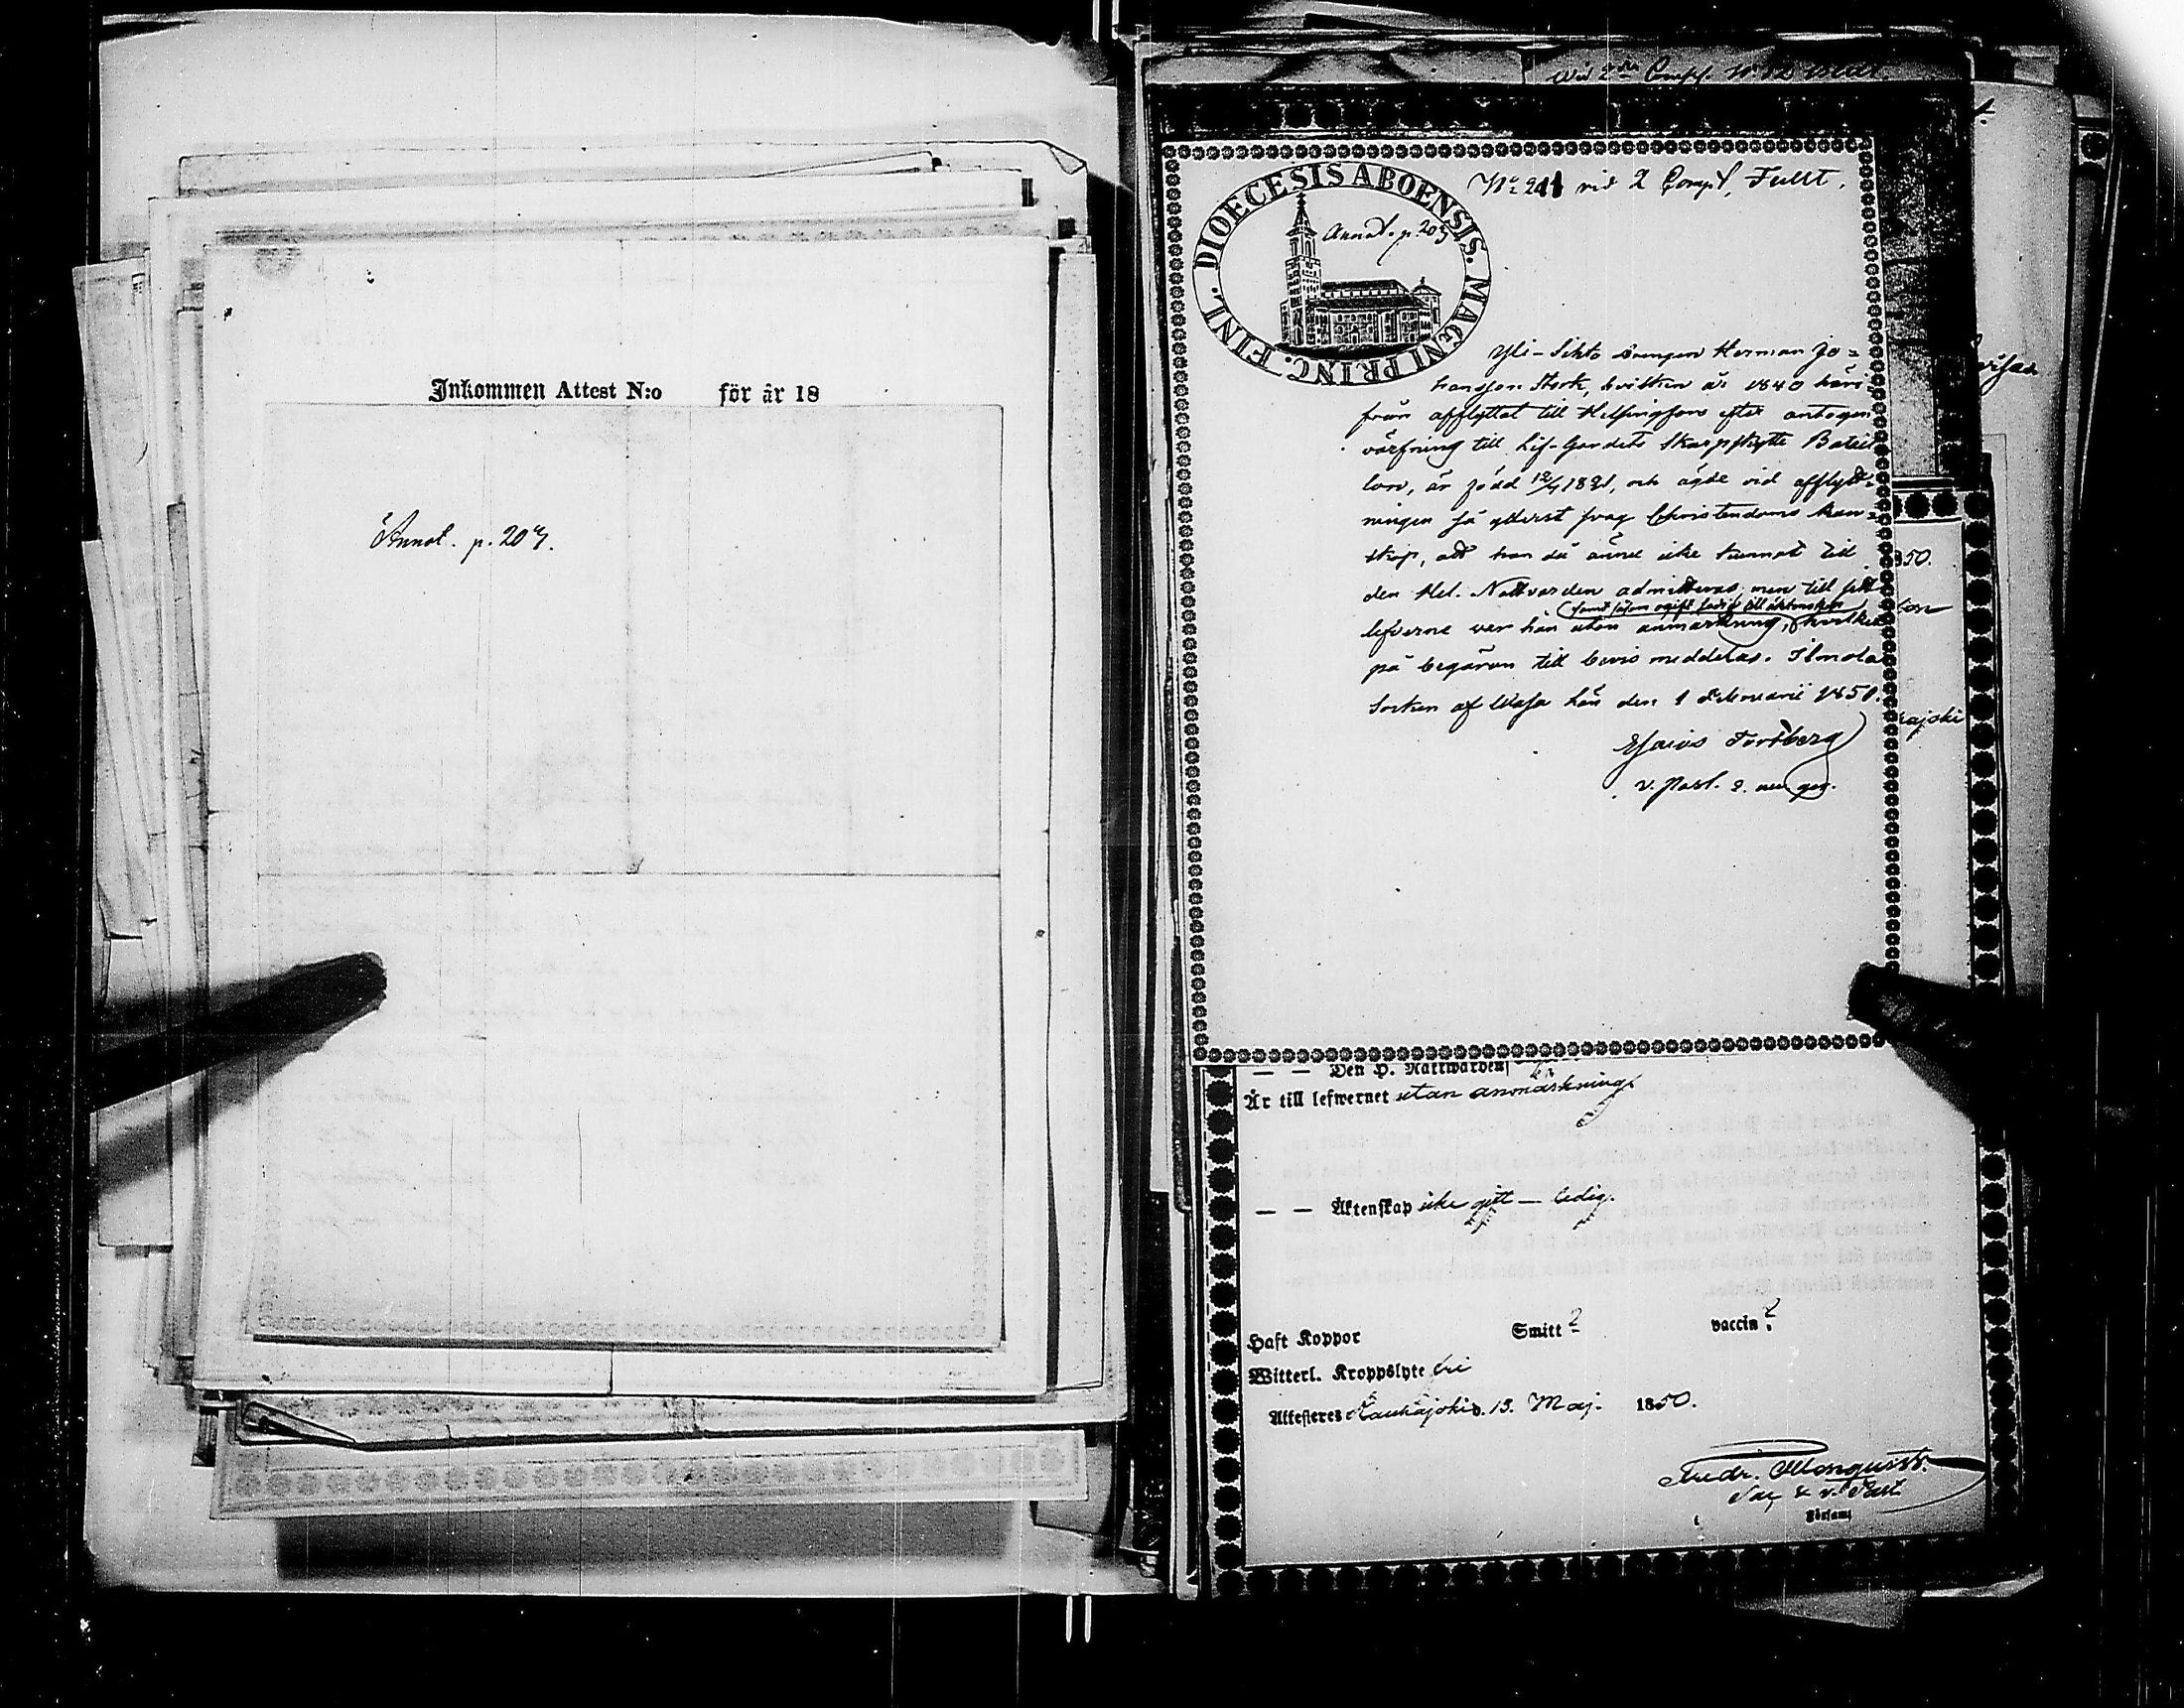 Inkommen Attest N:o för år 18
Annot. p. 207.
Wid 2dra Comp.
DIOECESIS ABOENSIS. MAGNI PRINC. FINL.
Annot. p. 207
No 211 vid 2 Comp.
Yli-Sihto drengen Herman Jo=
hansson Stork, hvilken år 1840 häri
från afflyttat till Helsingfors efter antagen
värfning till Lif-Gardets Skarpskytte Batail
lon, är född 12/4 1821, och ägde vid afflytt=
ningen så ytterst svag Christendoms kun=
skap, att han då ännu icke kunnat till
den Hel. Nattvarden admitteras, men till sitt
samt såsom ogift ledig till äktenskap
lefverne var han utan anmärkning, hvilket
på begäran till bevis meddelas. Ilmola
Socken af Wasa Län den 1 Februarii 1850.
Esaias Tordberg
v. Past.
850.
kajoki
— — Den H. Nattwarden
Är till lefwernet utan anmärkning.
— — Äktenskap icke gift — ledig.
Haft Koppor Smitt ? vaccin ?
Witterl. Kroppslyte fri
Attesteras Kauhajoki d. 13. Maj. 1850.
Fredr.
v. Past.
Församl